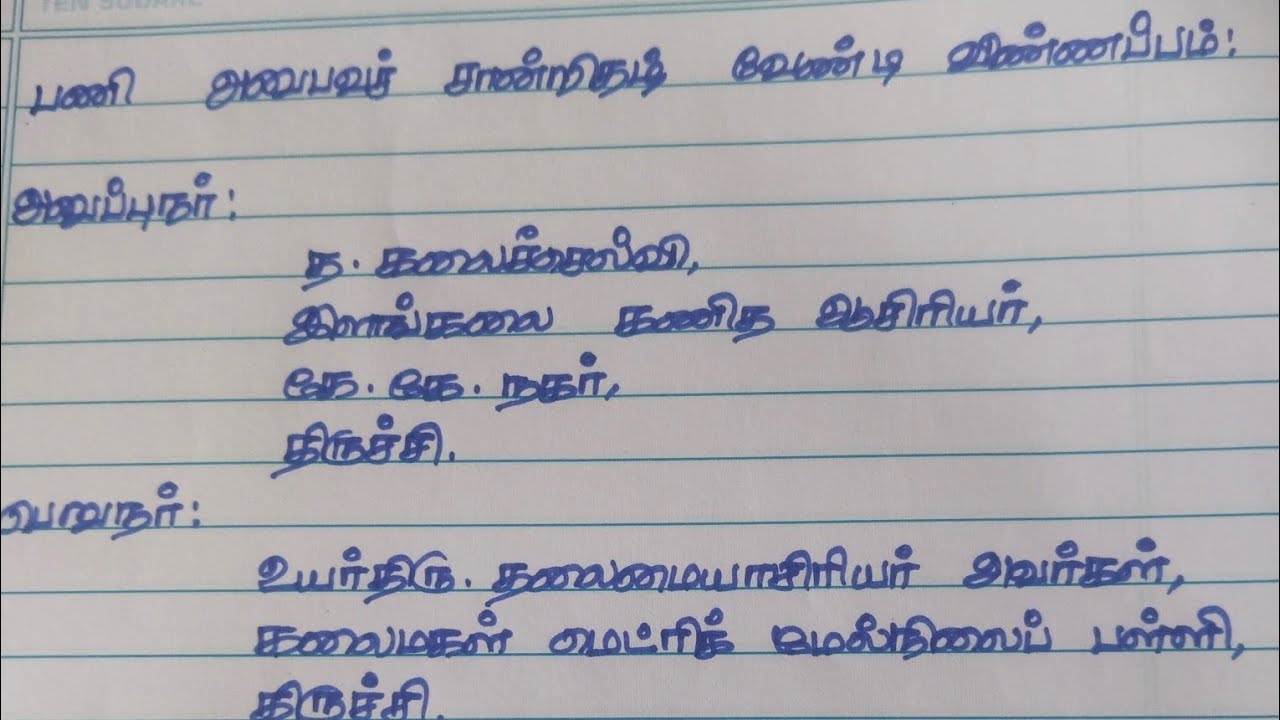 பணி அனுபவச் சான்றிதழ் வேண்டி விண்ணப்பம்:
அனுப்புநர்:
த. கலைச்செல்வி,
இளங்கலை கணித ஆசிரியர்,
கே. கே. நகர்,
திருச்சி.
பெறுநர்:
உயர்திரு. தலைமையாசிரியர் அவர்கள்,
கலைமகள் மெட்ரிக் மேல்நிலைப் பள்ளி,
திருச்சி.